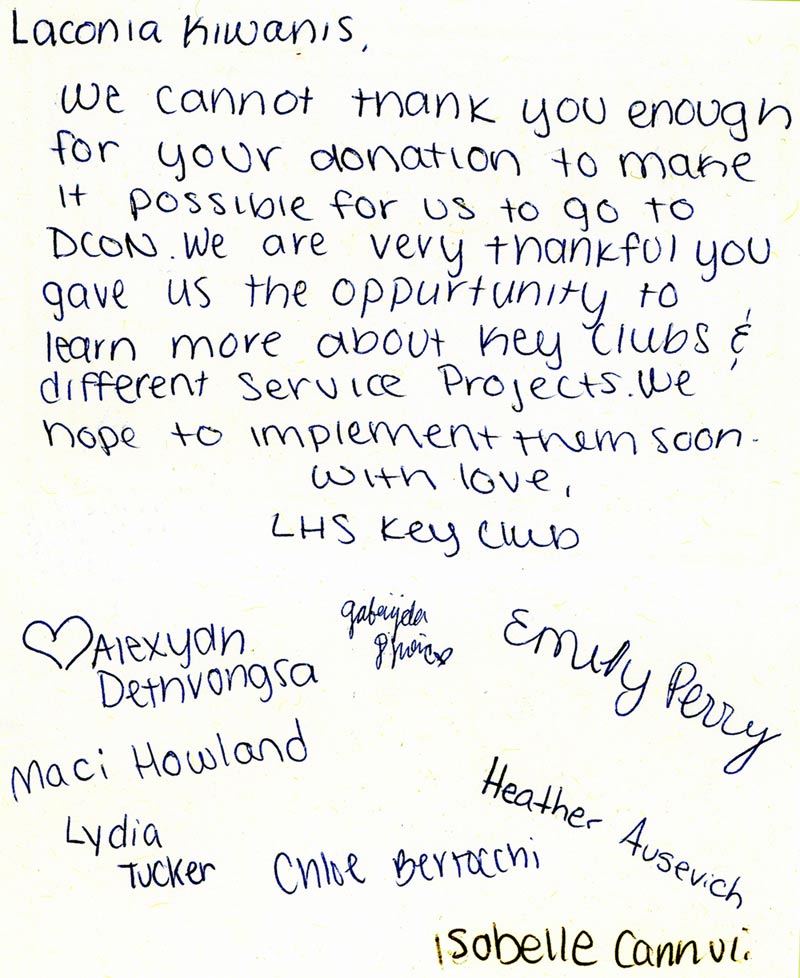 Laconia Kiwanis,
We cannot thank you enough
for your donation to make
it possible for us to go to
DCON. We are very thankful you
gave us the oppurtunity to
learn more about Key Clubs &
different Service Projects. We
hope to implement them soon.
With love,
LHS Key Club
Alexyan
Dethvongsa
Emily Perry
Maci Howland
Heather Ausevich
Lydia
Tucker
Chloe Bertocchi
Isobelle Cannuli